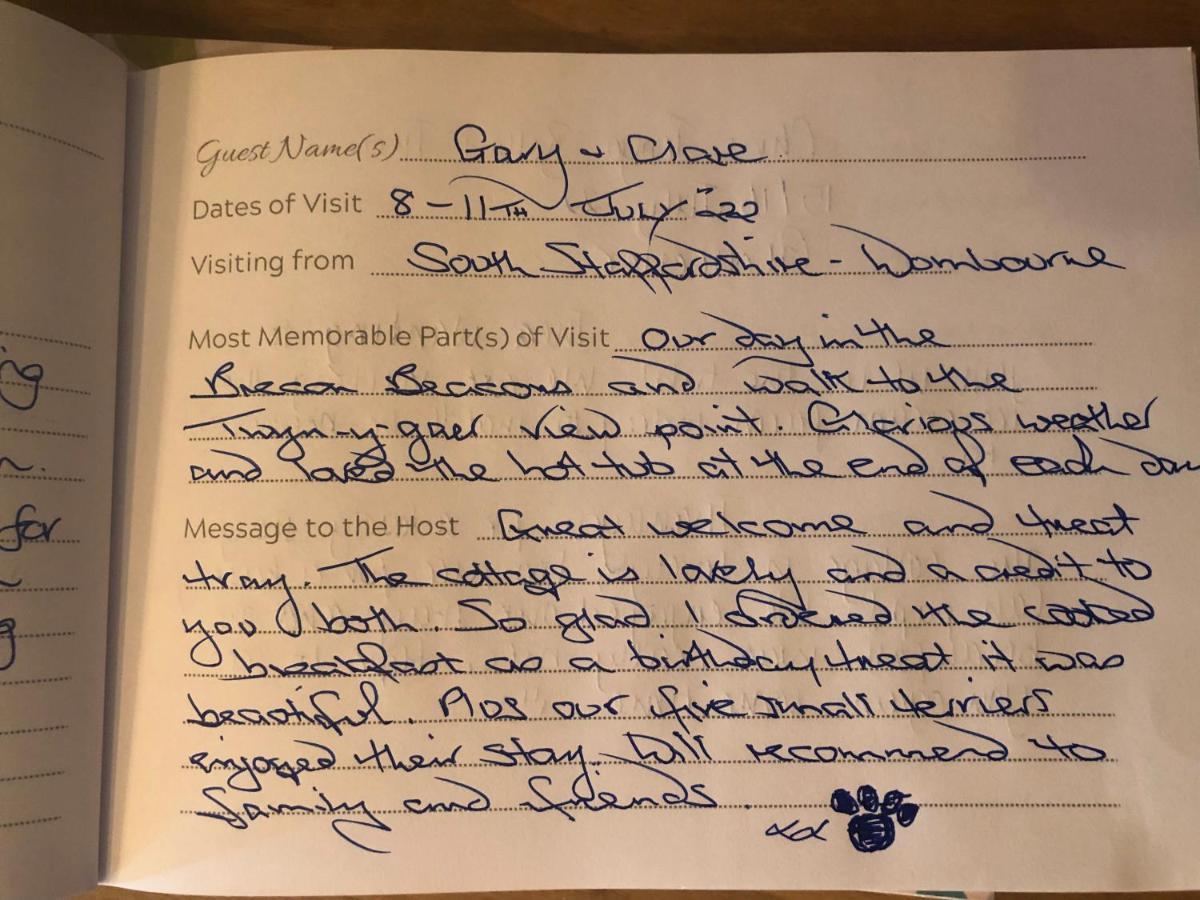 Guest Name(s) Gary & Clare
Dates of Visit 8 - 11TH JULY '22
Visiting from South Staffordshire - Wombourne
Most Memorable Part(s) of Visit Our day in the
Brecon Beacons and walk to the
Twyn-y-gaer view point. Glorious weather
and loved the hot tub at the end of each day
Message to the Host Great welcome and treat
tray. The cottage is lovely and a credit to
you both. So glad I ordered the cooked
breakfast as a birthday treat it was
beautiful. Plus our five small terriers
enjoyed their stay. Will recommend to
family and friends.
xx
ng
for
g